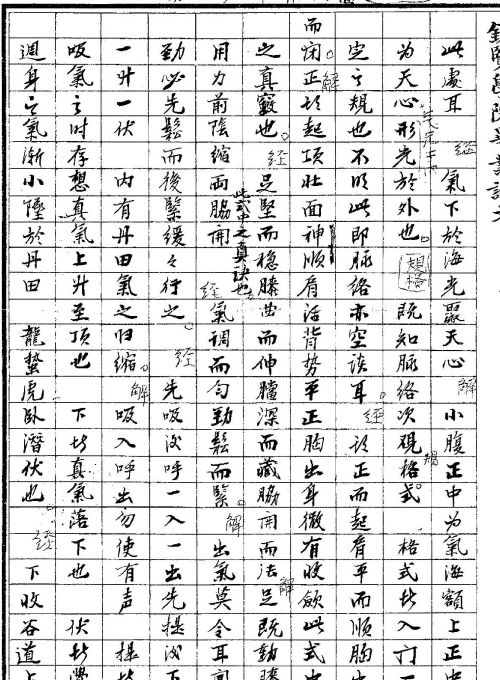 此處耳 經 氣下於海光聚天心 解 小腹正中為氣海額上正中
為天心形光於外也。 規格 既知脈絡次觀格式。格式者入門一
定之規也不明此即脈絡亦空談耳 經 頭正而起肩平而順胸出
而閉。解 正頭起項壯面神順肩活背勢平正胸出身微有收斂此式中
之真竅也。 經 足堅而穩膝曲而伸襠深而藏脇開而法 解 足既動膝
用力前陰縮兩脇開 此式中之真訣也 經 氣調而勻勁鬆而緊。 解 出氣莫令耳
勁必先鬆而後緊緩々行之。 經 先吸後呼一入一出先提後下
一升一伏 內有丹田氣之归縮。 解 吸入呼出勿使有声 提者
吸氣之时存想真氣上升至頂也 下者真氣落下也 伏者覺
週身之氣漸小墮於丹田 龍蟄虎卧潛伏也 經 下收谷道上